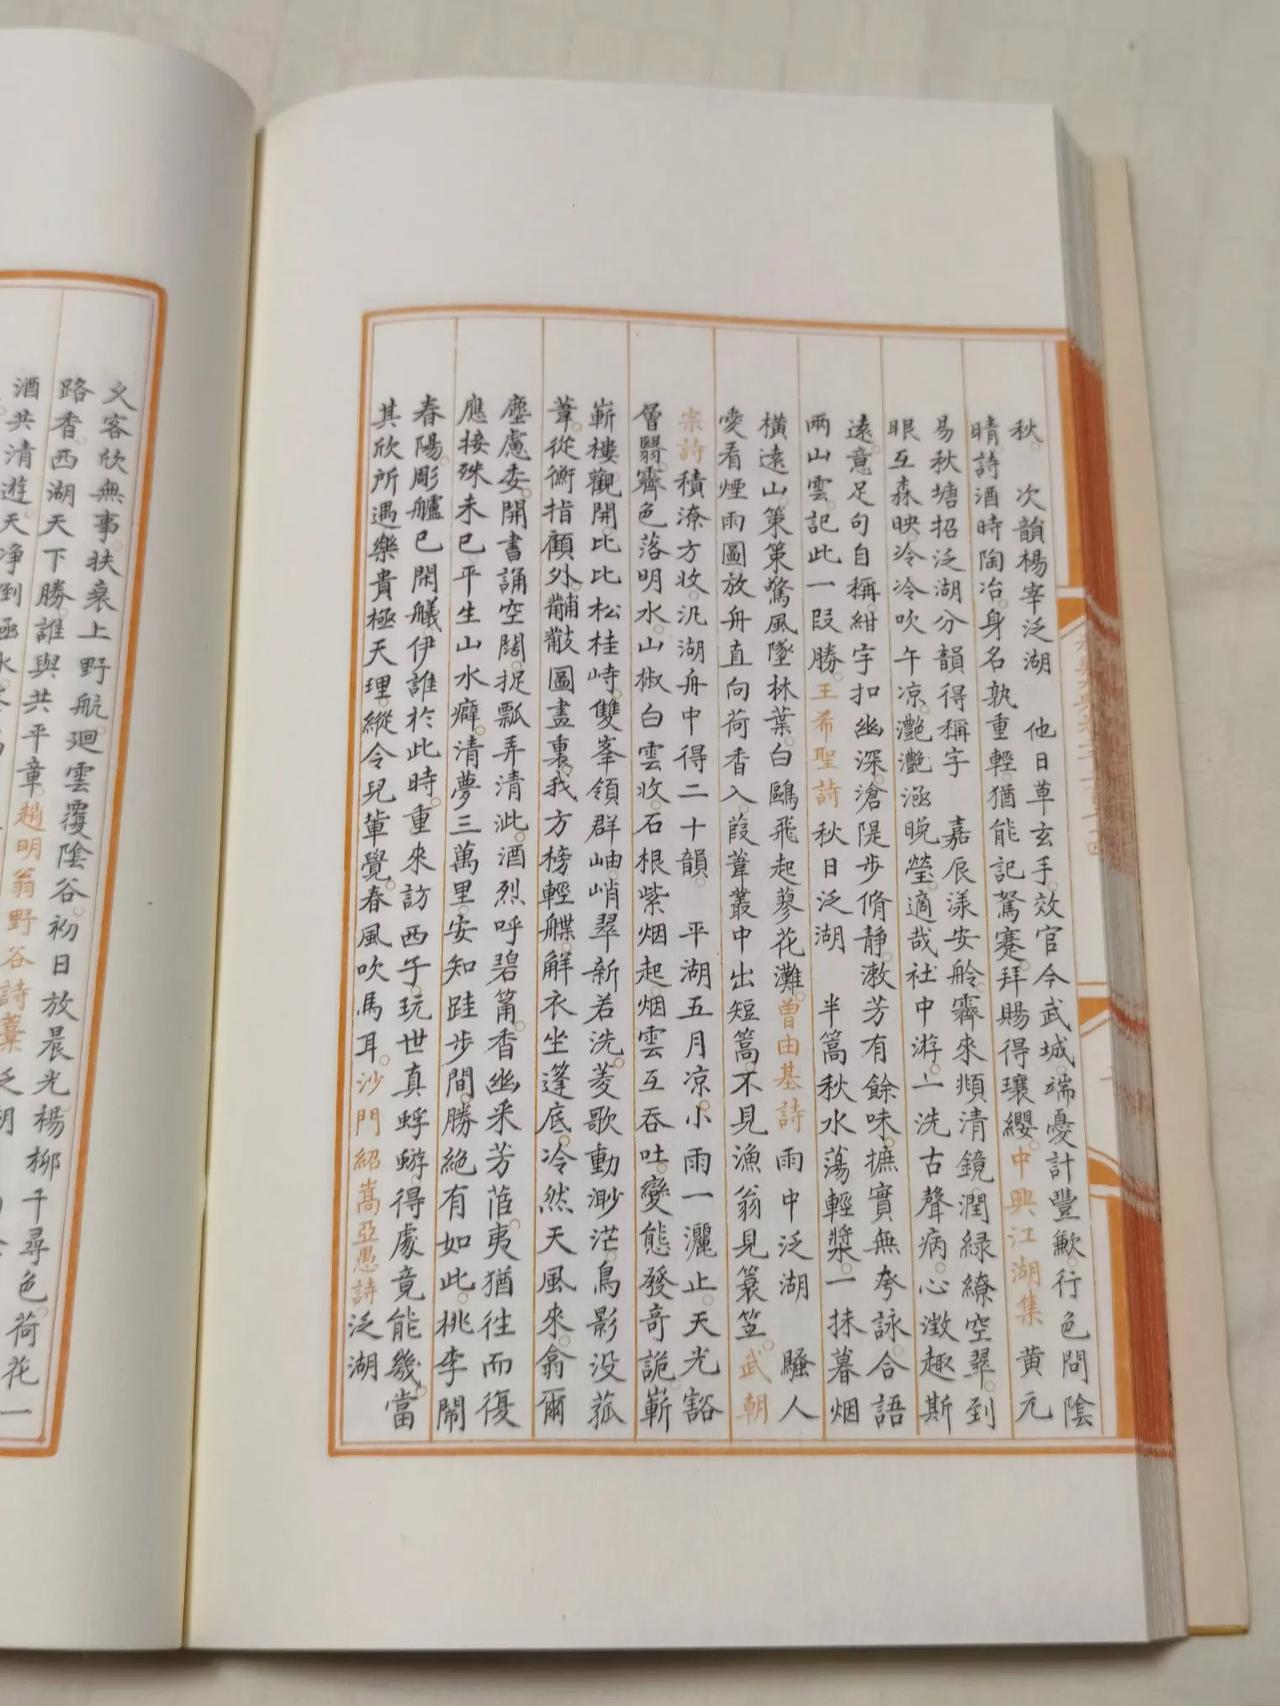 秋。　次韻楊宰泛湖　　他日草玄手。效官今武城。端憂計豐歉。行色問陰
晴。詩酒時陶冶。身名孰重輕。猶能記駑蹇。拜賜得瓌纓。中興江湖集 黃元
易秋塘招泛湖分韻得稱字　嘉辰漾安舲。霽來頫清鏡。潤綠繚空翠。到
眼互森映。泠泠吹午凉。灩灩涵晚瑩。適哉社中游。一洗古聲病。心澂趣斯
遠。意足句自稱。紺宇扣幽深。滄隄步脩靜。漱芳有餘味。摭實無夸詠。合語
兩山雲。記此一段勝。王希聖詩 秋日泛湖　半篙秋水蕩輕槳。一抹暮烟
橫遠山。策策驚風墜林葉。白鷗飛起蓼花灘。曾由基詩 雨中泛湖　騷人
愛看煙雨圖。放舟直向荷香入。葭葦叢中出短篙。不見漁翁見簑笠。武朝
宗詩 積潦方收。汎湖舟中得二十韻。　平湖五月凉。小雨一灑止。天光豁
層翳。霽色落明水。山椒白雲收。石根紫烟起。烟雲互吞吐。變態發奇詭。嶄
嶄樓觀開。比比松桂峙。雙峯領群岫。峭翠新若洗。菱歌動渺茫。鳥影没菰
葦。從衡指顧外。黼黻圖畫裏。我方榜輕艓。解衣坐蓬底。冷然天風來。翕爾
塵慮委。開書誦空闊。捉瓢弄清泚。酒烈呼碧筩。香幽采芳茝。夷猶往而復
應接殊未已。平生山水癖。清夢三萬里。安知跬步間。勝絕有如此。桃李鬧
春陽。彫艫已閑艤。伊誰於此時。重來訪西子。玩世真蜉蝣。得處竟能幾。當
其欣所遇。樂貴極天理。縱令兒輩覺。春風吹馬耳。沙門紹嵩亞愚詩 泛湖
客欣無事。扶衰上野航。迴雲覆陰谷。初日放晨光。楊柳千尋色。荷花一
路香。西湖天下勝。誰與共平章。趙明翁野谷詩藁 泛湖
酒共清遊。天净倒